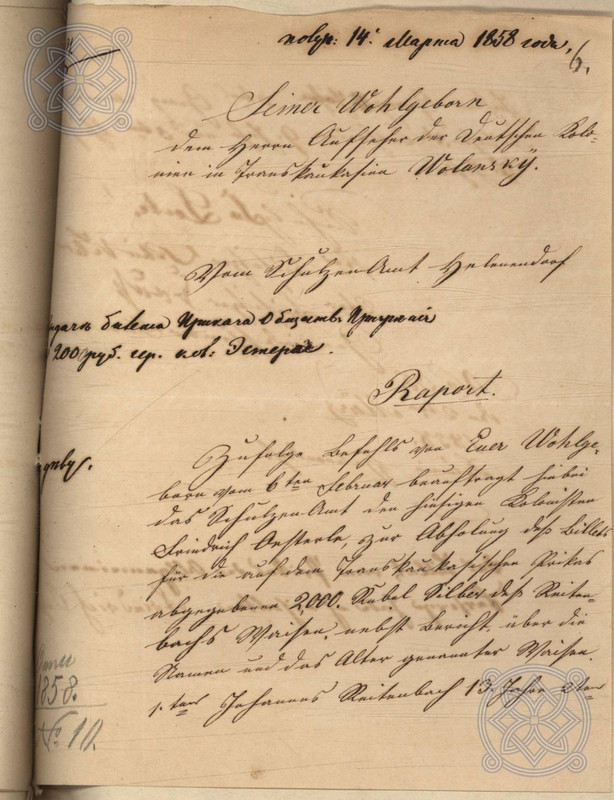 получ: 14: Марта 1858 года,
6.
Seiner Wohlgeborn
dem Herrn Aufseher der Deutschen Kolo-
nien in Transkaukasien Wolansky.
Vom SchulzenAmt Helenendorf
билета Приказа Обществ: Призрения
200 руб. сер. кол: Эстерле.
Raport.
Zufolge Befehls von Euer Wohlge-
born vom 6ten Februar beauftragt hiebei
das SchulzenAmt den hiesigen Kolonisten
Friedrich Oesterle zur Abholung deß Billets
für die auf dem Transkaukasischen Prikas
abgegebenen 2,000. Rubel Silber deß Reiten-
bachs Waisen, nebst Bericht, über die
Namen und das Alter genannter Waisen.
1.tens Johannes Reitenbach 13. Jahre 2tens
1858.
№ 10.